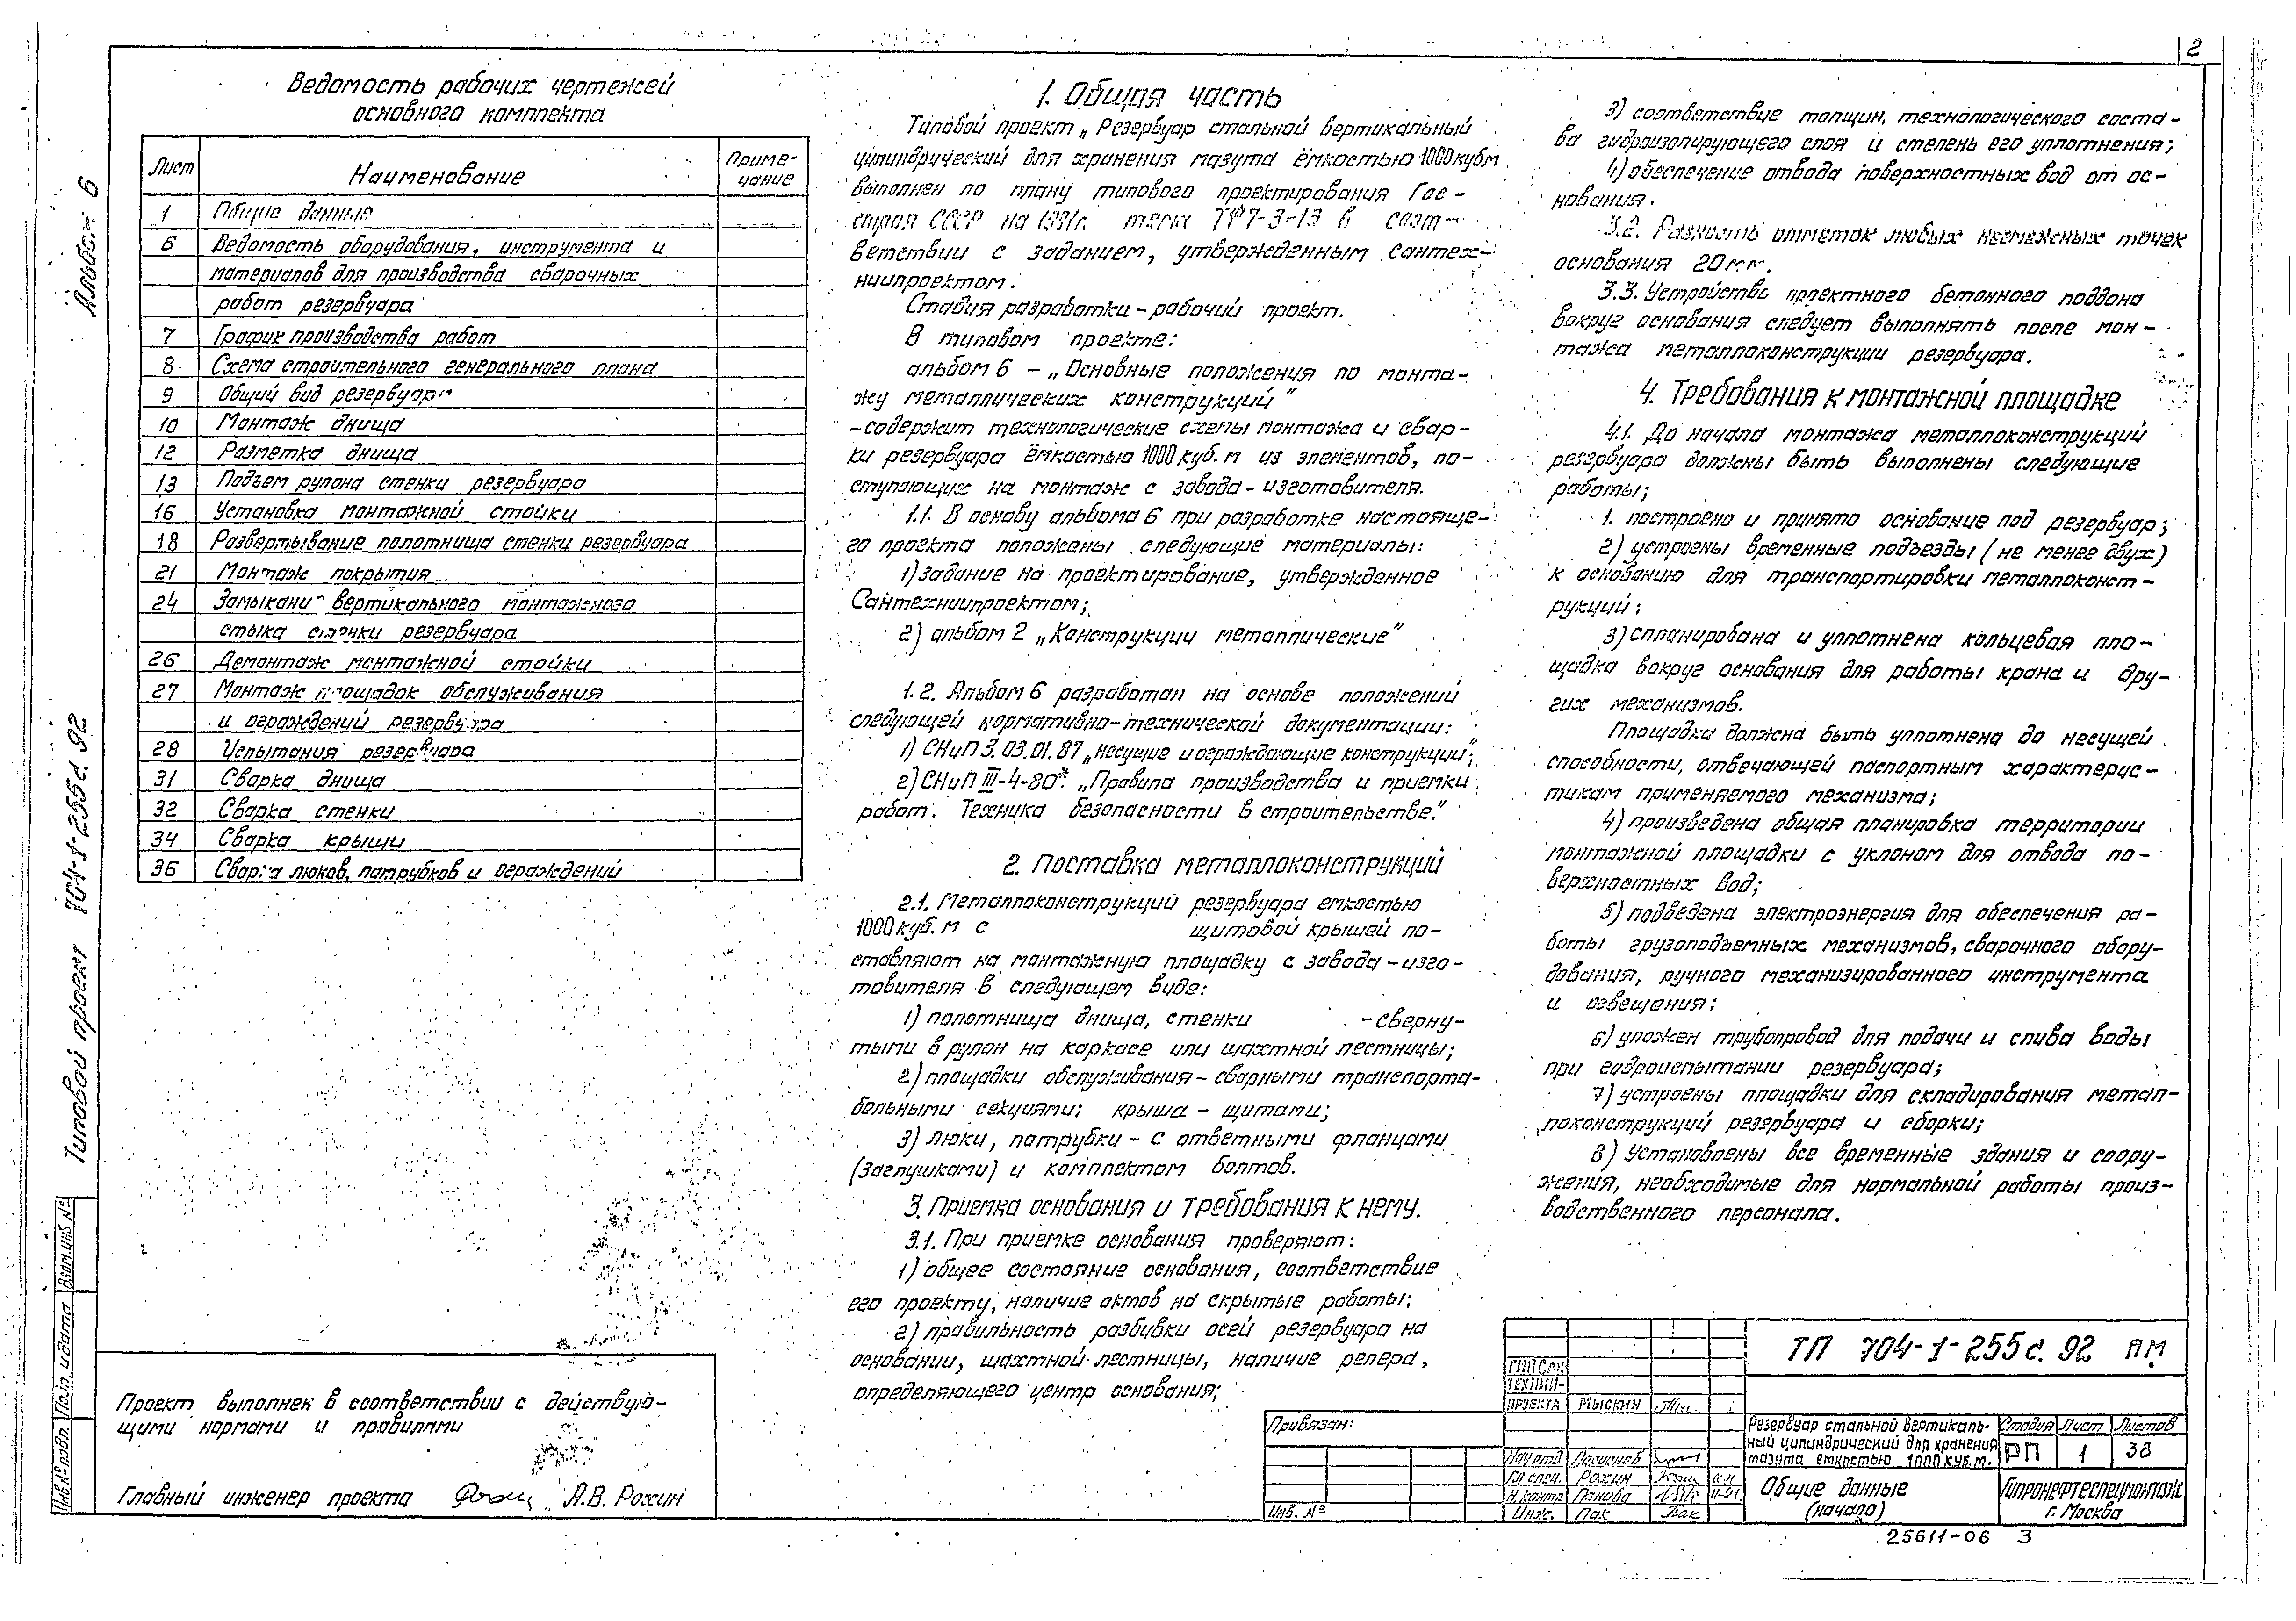 2
Альбом 6
Типовой проект 704-1-255с.92
Взам.инв №
Подп. и дата
Инв.№ подл.
Ведомость рабочих чертежей
основного комплекта
Лист Наименование Приме-
чание
1 Общие данные
6 Ведомость оборудования, инструмента и
материалов для производства сварочных
работ резервуара
7 График производства работ
8 Схема строительного генерального плана
9 Общий вид резервуара
10 Монтаж днища
12 Разметка днища
13 Подъем рулона стенки резервуара
16 Установка монтажной стойки
18 Развертывание полотнища стенки резервуара
21 Монтаж покрытия
24 Замыкание вертикального монтажного
стыка стенки резервуара
26 Демонтаж монтажной стойки
27 Монтаж площадок обслуживания
и ограждений резервуара
28 Испытания резервуара
31 Сварка днища
32 Сварка стенки
34 Сварка крыши
36 Сварка люков, патрубков и ограждений
Проект выполнен в соответствии с действую-
щими нормами и правилами
Главный инженер проекта А.В. Рохин
1. Общая часть
Типовой проект „Резервуар стальной вертикальный
цилиндрический для хранения мазута ёмкостью 1000 куб.м
выполнен по плану типового проектирования Гос-
строя СССР на 1991г. тема Т 7-3-13 в соот-
ветствии с заданием, утвержденным Сантех-
ниипроектом.
Стадия разработки – рабочий проект.
В типовом проекте:
альбом 6 – „Основные положения по монта-
жу металлических конструкций“
– содержит технологические схемы монтажа и свар-
ки резервуара ёмкостью 1000 куб.м из элементов, по-
ступающих на монтаж с завода-изготовителя.
1.1. В основу альбома 6 при разработке настояще-
го проекта положены следующие материалы:
1) задание на проектирование, утвержденное
Сантехниипроектом;
2) альбом 2 „Конструкции металлические“
1.2. Альбом 6 разработан на основе положений
следующей нормативно-технической документации:
1) СНиП 3.03.01.87 „Несущие и ограждающие конструкции“;
2) СНиП III-4-80*. „Правила производства и приемки
работ. Техника безопасности в строительстве.“
2. Поставка металлоконструкций
2.1. Металлоконструкций резервуара емкостью
1000 куб. м с щитовой крышей по-
ставляют на монтажную площадку с завода-изго-
товителя в следующем виде:
1) полотнища днища, стенки – сверну-
тыми в рулон на каркасе или шахтной лестницы;
2) площадки обслуживания – сварными транспорта-
бельными секциями; крыша – щитами;
3) люки, патрубки – с ответными фланцами
(заглушками) и комплектом болтов.
3. Приемка основания и требования к нему.
3.1. При приемке основания проверяют:
1) общее состояние основания, соответствие
его проекту, наличие актов на скрытые работы;
2) правильность разбивки осей резервуара на
основании, шахтной лестницы, наличие репера,
определяющего центр основания;
3) соответствие толщин, технологического соста-
ва гидроизолирующего слоя и степень его уплотнения;
4) обеспечение отвода поверхностных вод от ос-
нования.
3.2. Разность отметок любых несмежных точек
основания 20 мм.
3.3. Устройство проектного бетонного поддона
вокруг основания следует выполнять после мон-
тажа металлоконструкции резервуара.
4. Требования к монтажной площадке
4.1. До начала монтажа металлоконструкций
резервуара должны быть выполнены следующие
работы;
1. построено и принято основание под резервуар;
2) устроены временные подъезды (не менее двух)
к основанию для транспортировки металлоконст-
рукций;
3) спланирована и уплотнена кольцевая пло-
щадка вокруг основания для работы крана и дру-
гих механизмов.
Площадка должна быть уплотнена до несущей
способности, отвечающей паспортным характерис-
тикам применяемого механизма;
4) произведена общая планировка территории
монтажной площадки с уклоном для отвода по-
верхностных вод;
5) подведена электроэнергия для обеспечения ра-
боты грузоподъемных механизмов, сварочного обору-
дования, ручного механизированного инструмента
и освещения;
6) уложен трубопровод для подачи и слива воды
при гидроиспытании резервуара;
7) устроены площадки для складирования метал-
локонструкций резервуара и сборки;
8) Установлены все временные здания и соору-
жения, необходимые для нормальной работы произ-
водственного персонала.
Привязан:
Инв. №
ГИП САН
ТЕХНИИ-
ПРОЕКТА Мыскин
Нач.отд
Гл.спец. Рохин
Н.контр. Панова 11-91
Инж. Пак
ТП 704-1-255с.92 ПМ
Резервуар стальной вертикаль-
ный цилиндрический для хранения
мазута емкостью 1000 куб.м.
Стадия Лист Листов
РП 1 38
Общие данные
(начало)
Гипронефтеспецмонтаж
г. Москва
25611-06 3